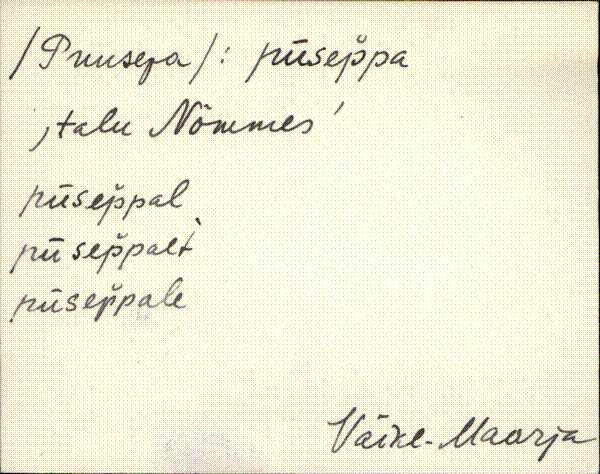 /Puusepa/: pūsep̆pa
‚talu Nõmmes’
pūsep̆pal
pūsep̆palt̀
pūsep̆pale
Väike-Maarja